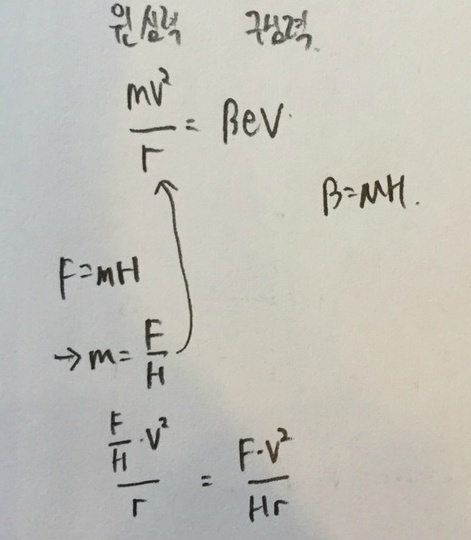 원심력 구심력
mv²/r = Bev
B=μH.
F=mH
→m=F/H
F/H·v²/r = F·v²/Hr